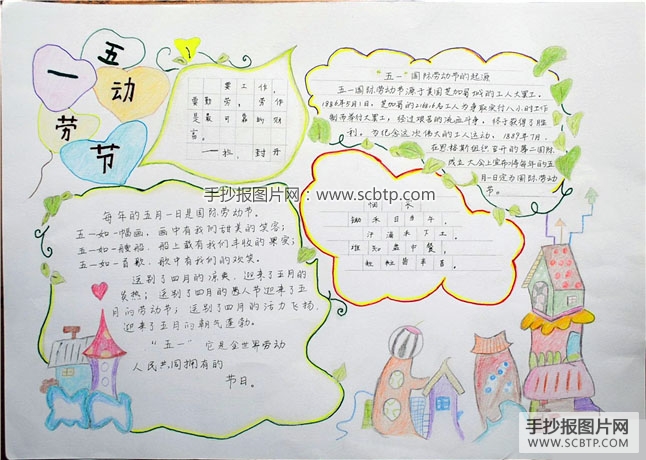 五一
动
劳
节
要工作,
要勤劳:劳作
是最可靠的财
富。
“五一”国际劳动节的起源
五一国际劳动节源于美国芝加哥城的工人大罢工。
1886年5月1日,芝加哥的216000名工人为争取实行八小时工作
制而举行大罢工,经过艰苦的流血斗争,终于获得了胜
利。为纪念这次伟大的工人运动,1889年7月,
在恩格斯组织召开的第二国际
成立大会上宣布将每年的五
月一日定为国际劳动
节。
手抄报图片网:www.scbtp.com
悯农
锄禾日当午,
汗滴禾下土。
谁知盘中餐,
粒粒皆辛苦。
每年的五月一日是国际劳动节。
五一如一幅画,画中有我们甜美的笑容;
五一如一艘船,船上载有我们丰收的果实;
五一如一首歌,歌中有我们的欢笑。
送别了四月的凉爽,迎来了五月的
炎热;送别了四月的愚人节迎来了五
月的劳动节;送别了四月的活力飞扬,
迎来了五月的朝气蓬勃。
“五一”它是全世界劳动
人民共同拥有的
节日。
手抄报图片网
WWW.SCBTP.COM